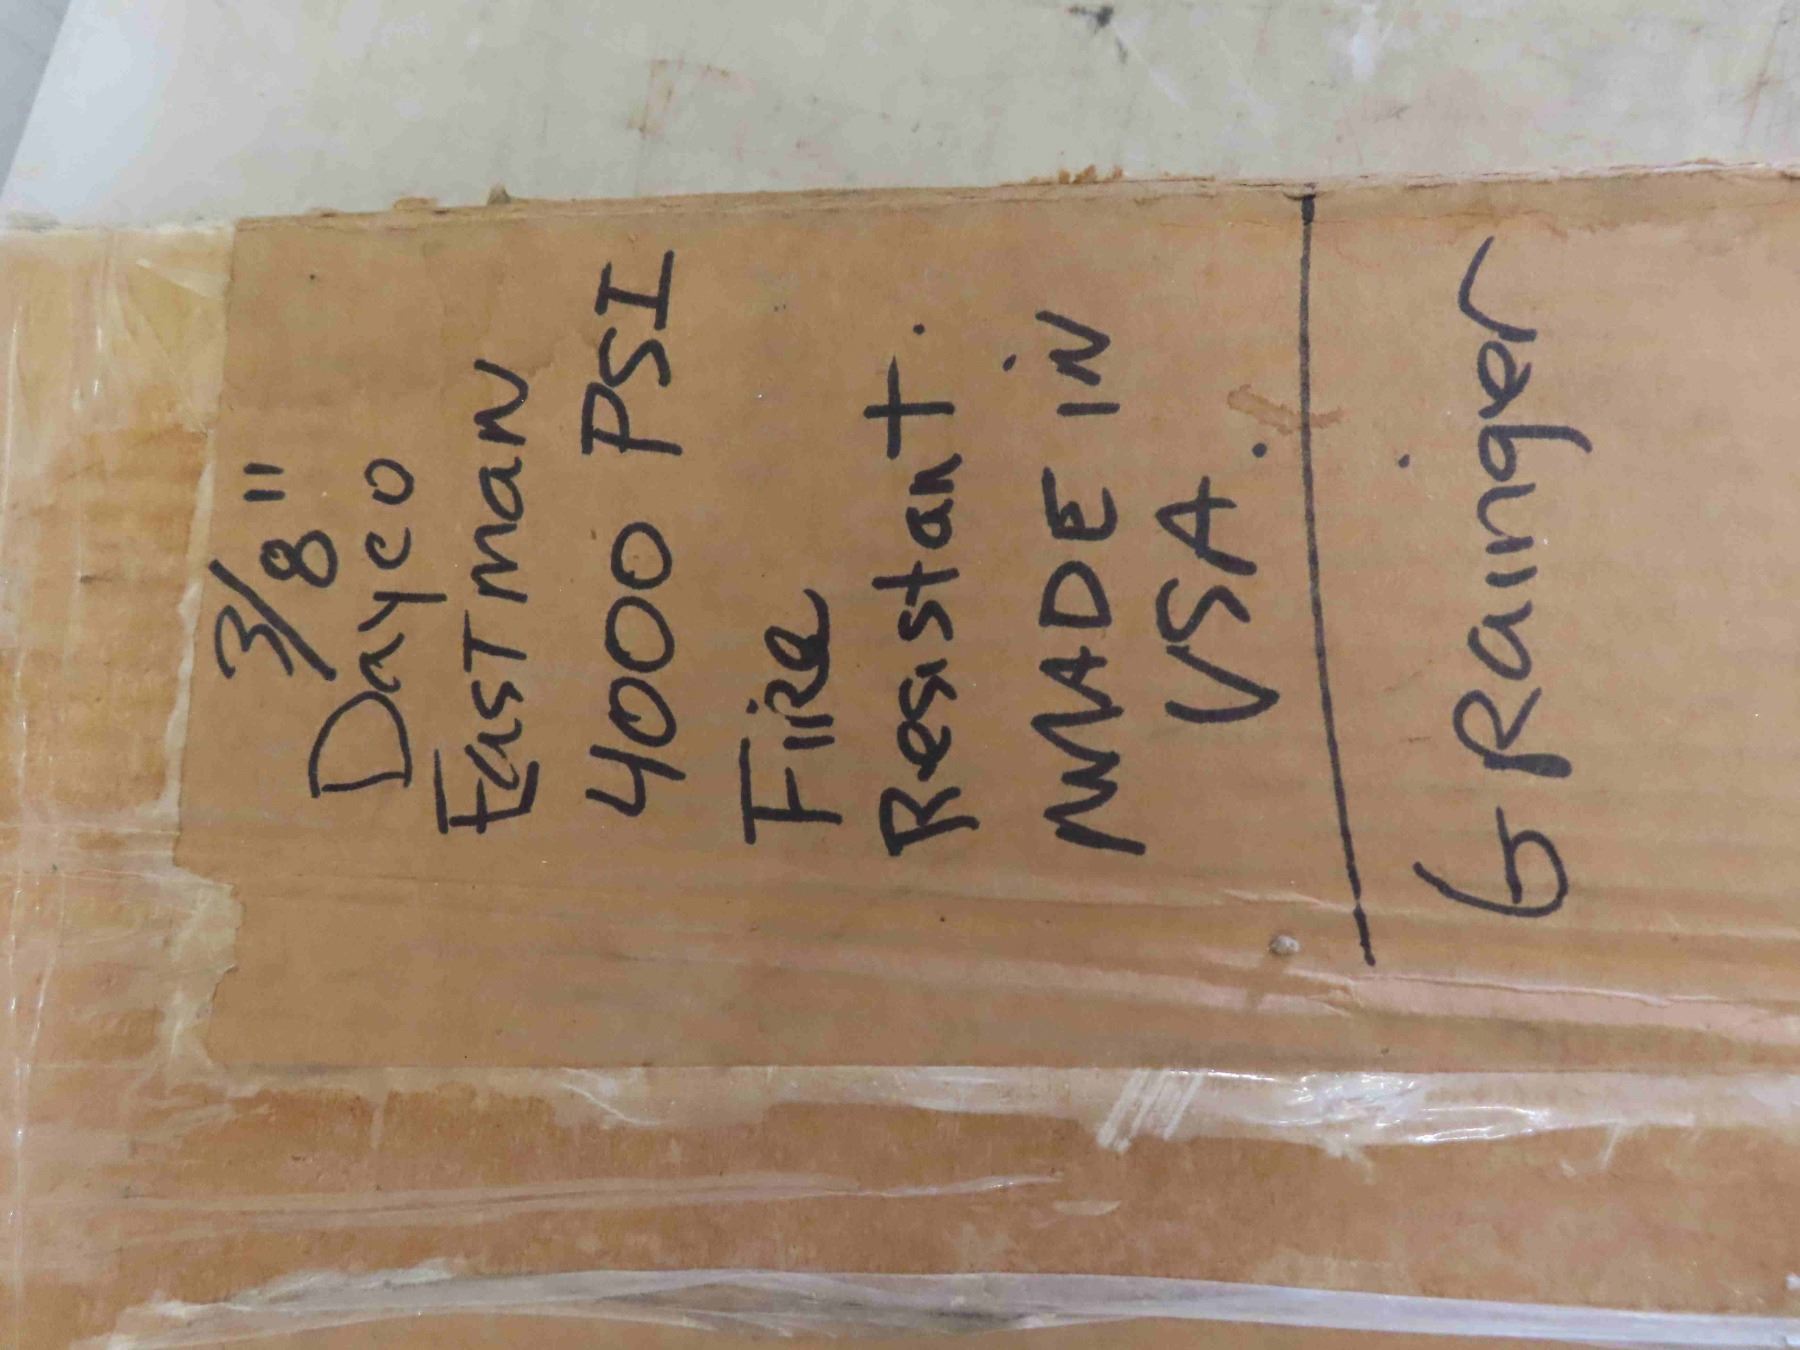 3/8"
Dayco
Eastman
4000 PSI
Fire
Resistant.
MADE IN
USA.
GRainger